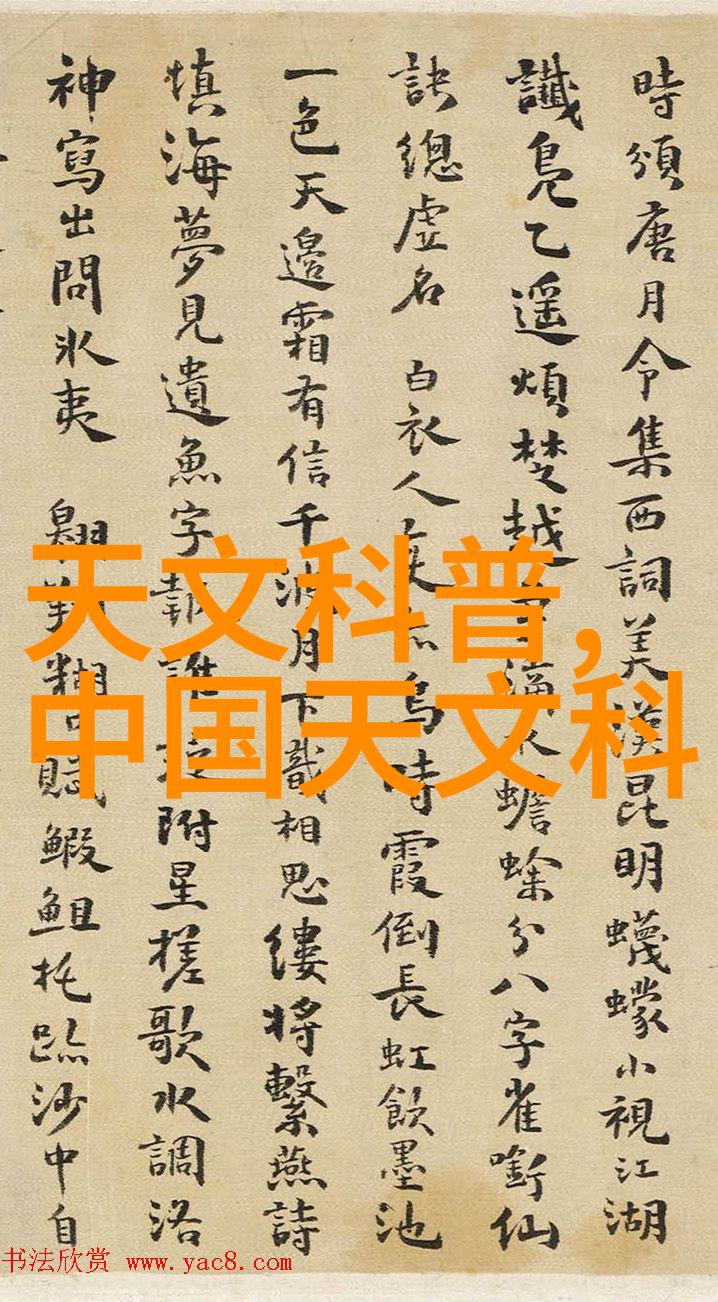 時頒唐月令集西詞美漢昆明蠛蠓小視江湖
讖鳧乙遥煩楚越字瀛不蟾蜍分八字雀銜仙
訣總虛名 白衣人去烏時霞倒長虹飲墨池
一色天邊霜有信千波月下識相思縷將繫燕詩
慎海夢見遺魚字報誰附星槎歌水調洛
神寫出問冰夷 翱糊口賦鰕鉏托跡沙中自
天文科普,
中国天文科
书法欣赏 www.yac8.com